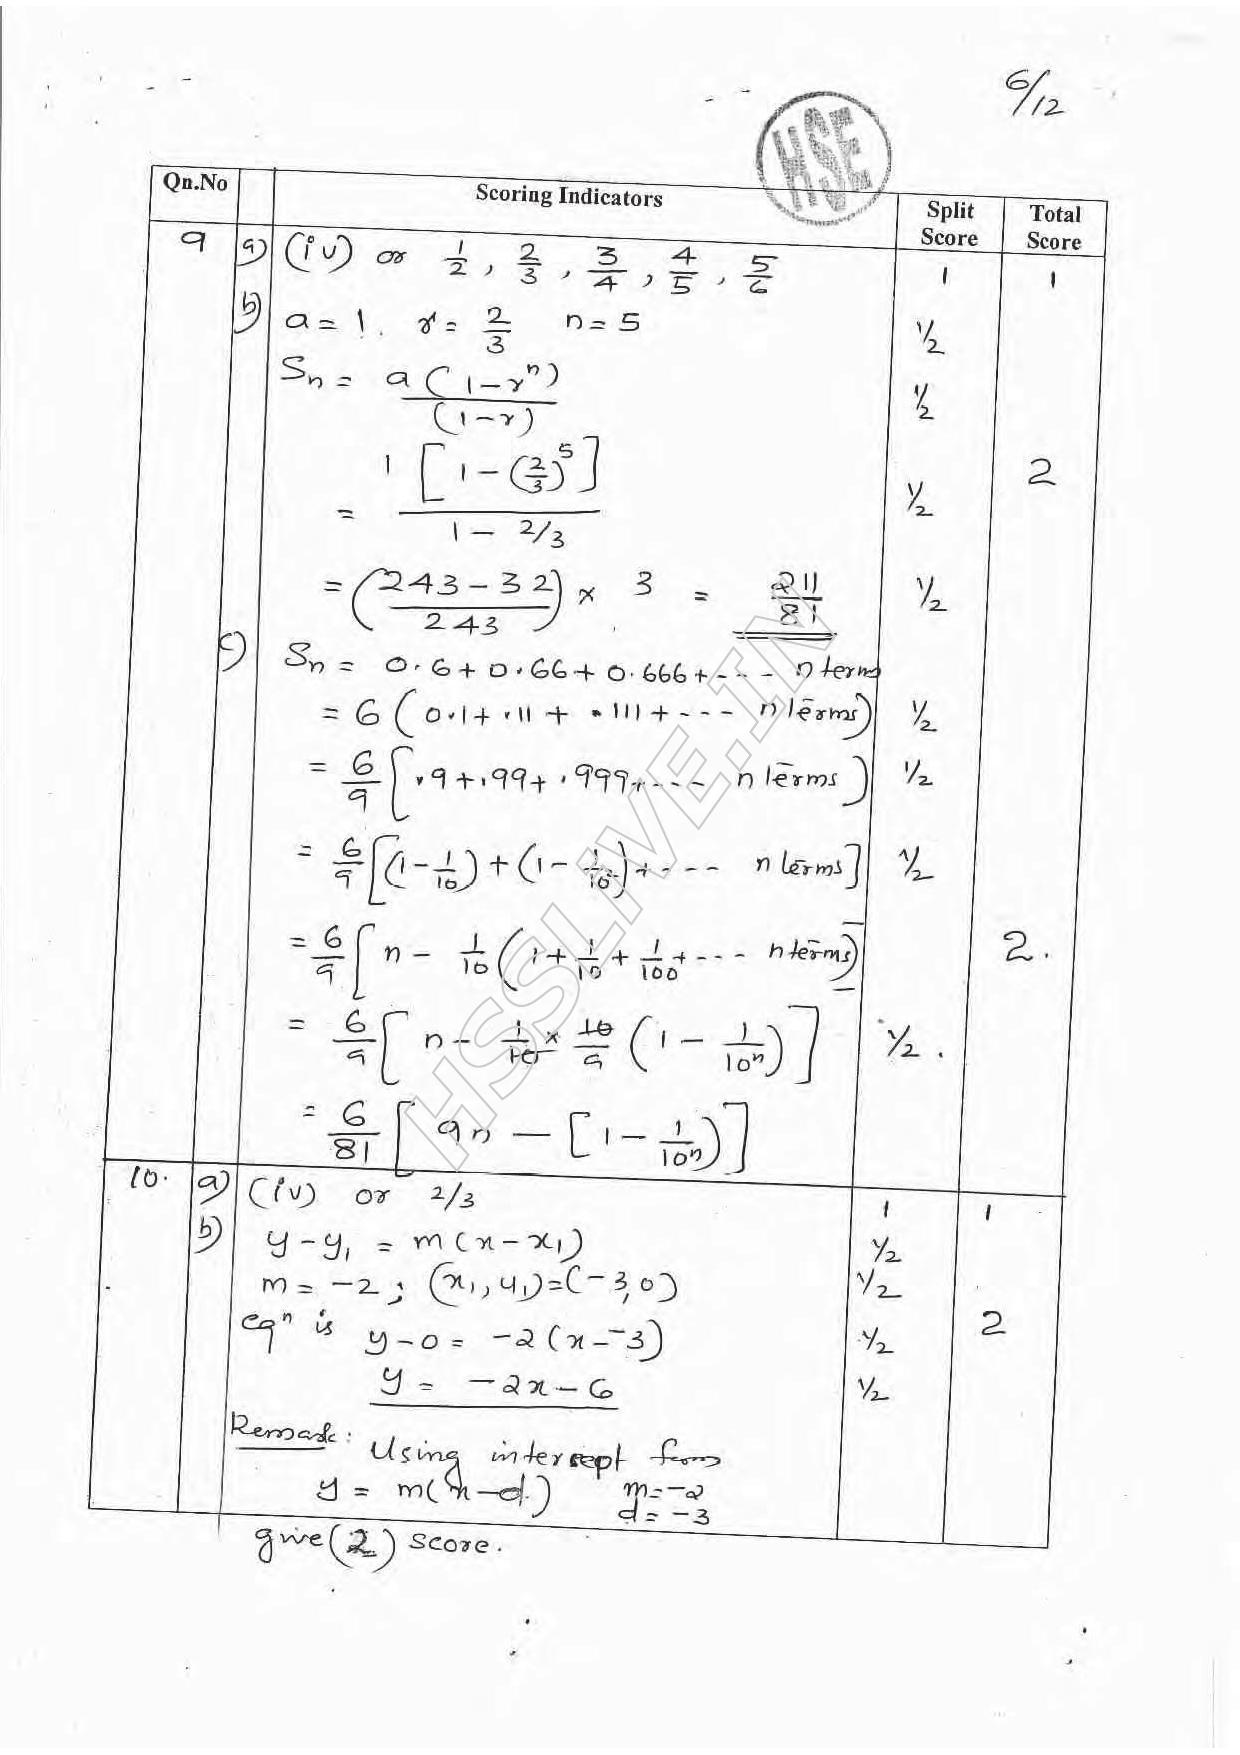 6/12
HSE
Qn.No Scoring Indicators Split Score Total Score
9 a) (iv) or 1/2, 2/3, 3/4, 4/5, 5/6 1 1
b) a = 1. r = 2/3 n = 5 1/2
Sn = a(1-r^n)/(1-r) 1/2
= 1[1-(2/3)^5]/(1-2/3) 1/2 2
= (243-32/243) × 3 = 211/81 1/2
c) Sn = 0.6 + 0.66 + 0.666 + --- n terms
= 6(0.1 + .11 + .111 + --- n terms) 1/2
= 6/9 [.9 + .99 + .999 + --- n terms) 1/2
= 6/9 [(1-1/10) + (1-1/10²) + --- n terms] 1/2
= 6/9 [n - 1/10 (1 + 1/10 + 1/100 + --- n terms) 2.
= 6/9 [n - 1/10 × 10/9 (1 - 1/10^n)] 1/2.
= 6/81 [9n - [1 - 1/10^n)]
10. a) (iv) or 2/3 1 1
b) y-y1 = m(x-x1) 1/2
m = -2; (x1, y1) = (-3,0) 1/2
eqn is y-0 = -2(x--3) 1/2 2
y = -2x-6 1/2
Remark: Using intercept form
y = m(x-d) m=-2
d=-3
give (2) score.
HSSLIVE.IN